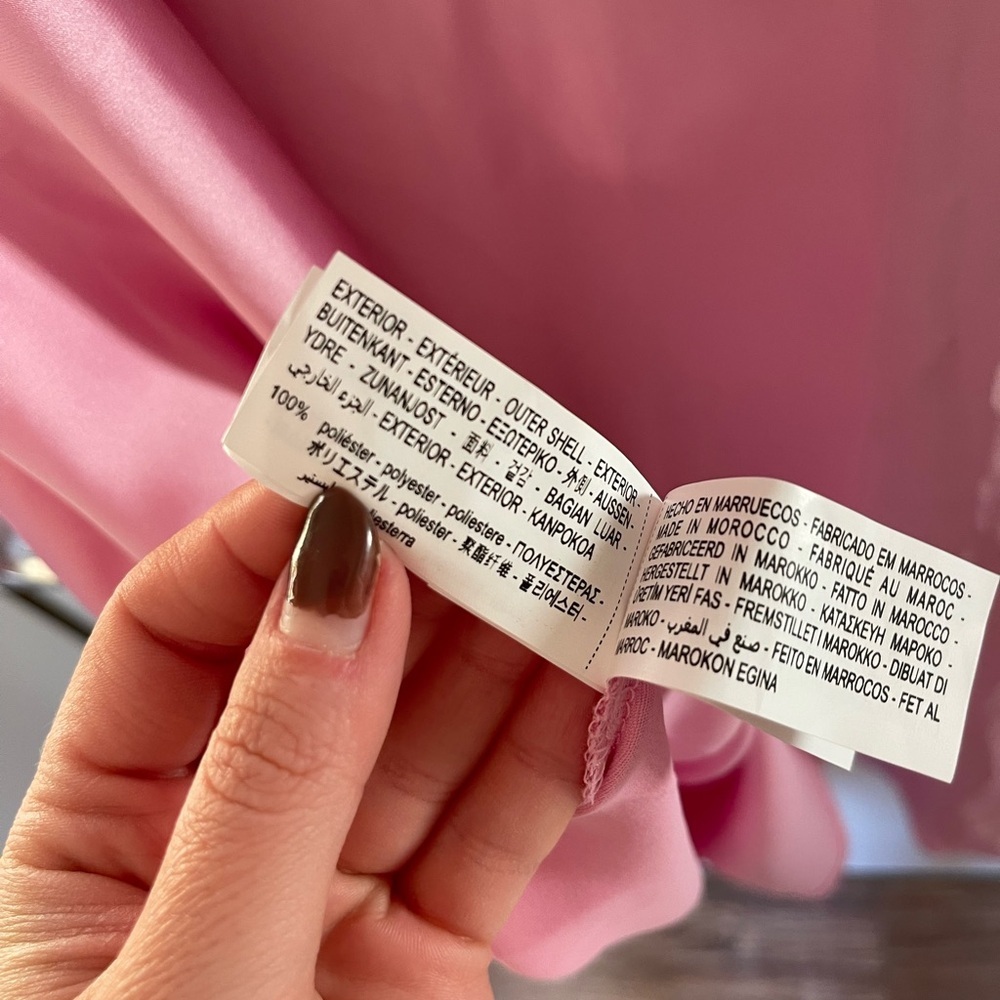 EXTERIOR - EXTÉRIEUR - OUTER SHELL - EXTERIOR -
BUITENKANT - ESTERNO - ΕΞΩΤΕΡΙΚΟ - 外側 - AUSSEN-
YDRE - ZUNANJOST - 面料 - 겉감 - BAGIAN LUAR -
الجزء الخارجي - EXTERIOR - EXTERIOR - KANPOKOA
100% poliéster - polyester - poliestere - ΠΟΛΥΕΣΤΕΡΑΣ -
ポリエステル - poliester - 聚酯纤维 - 폴리에스터 -
HECHO EN MARRUECOS - FABRICADO EM MARROCOS -
MADE IN MOROCCO - FABRIQUÉ AU MAROC -
GEFABRICEERD IN MAROKKO - FATTO IN MAROCCO -
HERGESTELLT IN MAROKKO - ΚΑΤΑΣΚΕΥΗ ΜΑΡΟΚΟ -
ÜRETİM YERİ FAS - FREMSTILLET I MAROKKO - DIBUAT DI
MAROKO - صنع في المغرب - FEITO EN MARROCOS - FET AL
MARROC - MAROKON EGINA